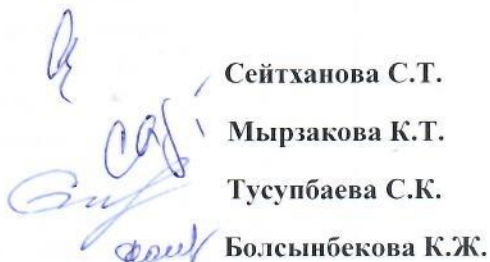 Сейтханова С.Т.
Мырзакова К.Т.
Тусупбаева С.К.
Болсынбекова К.Ж.